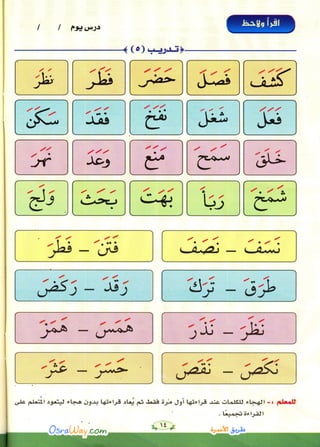 اقرأ ولاحظ
درس يوم / /
﴿تدريب (٥)﴾
كَشَفَ فَصَلَ حَضَرَ فَطَرَ نَظَرَ
فَعَلَ شَغَلَ نَفَخَ فَقَدَ سَكَنَ
خَلَقَ سَمَحَ مَنَعَ وَعَدَ نَهَرَ
شَمَخَ رَبَأَ بَهَتَ بَحَثَ وَلَجَ
نَسَفَ – نَصَفَ فَتَنَ – فَطَرَ
طَرَقَ – تَرَكَ رَقَدَ – رَكَضَ
نَظَرَ – نَذَرَ هَمَسَ – هَمَزَ
نَكَصَ – نَقَصَ حَسَرَ – عَثَرَ
للمعلم :- الهجاء للكلمات عند قراءتها لأول مرة فقط ثم يُعاد قراءتها بدون هجاء ليتعود المتعلم على
القراءة تجميعًا .
١٤
OsraWay.com
طريق الأسرة